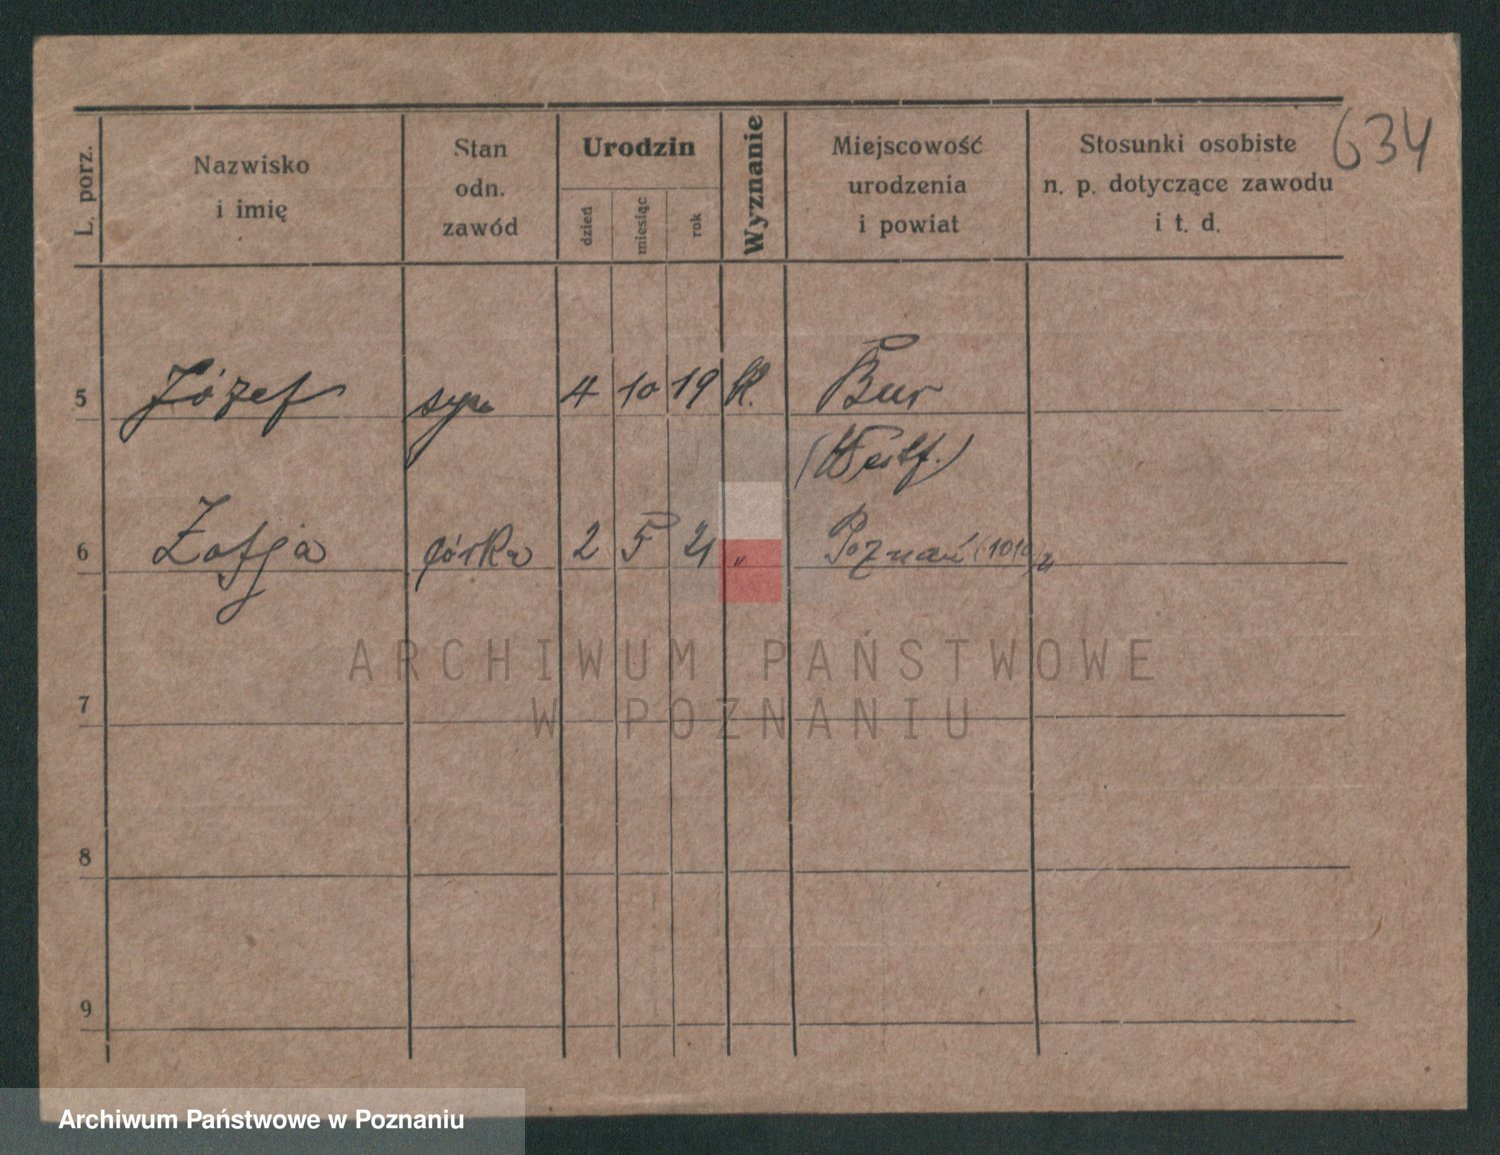 634
L. porz.
Nazwisko
i imię
Stan
odn.
zawód
Urodzin
dzień
miesiąc
rok
Wyznanie
Miejscowość
urodzenia
i powiat
Stosunki osobiste
n. p. dotyczące zawodu
i t. d.
5 Józef syn 4 10 19 k. Bur
(Westf.)
6 Zofja córka 2 5 21 „ Poznań
ARCHIWUM PAŃSTWOWE
W POZNANIU
7
8
9
Archiwum Państwowe w Poznaniu